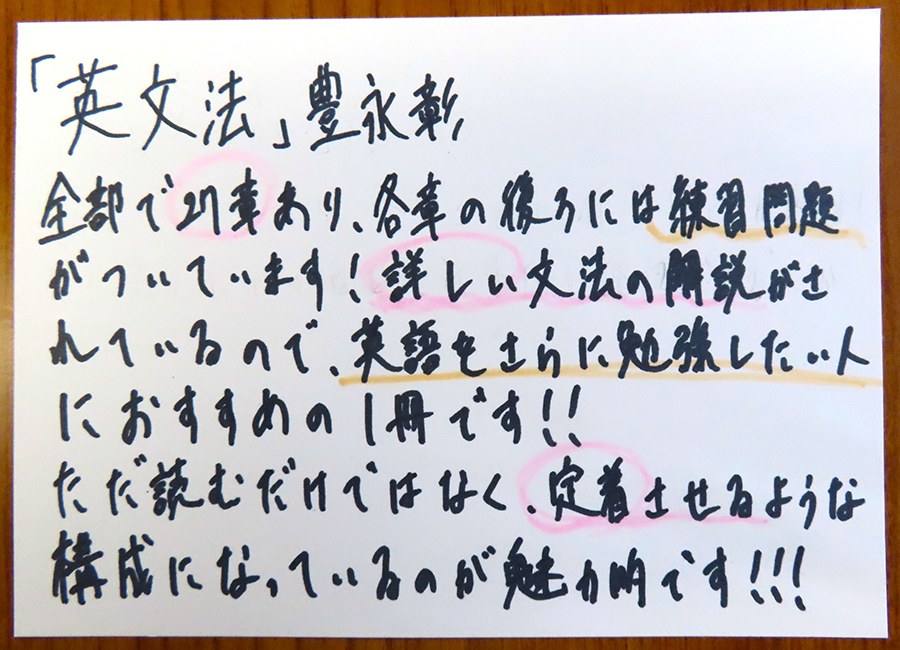 「英文法」豊永彰
全部で27章あり、各章の後ろには練習問題
がついています!詳しい文法の解説がさ
れているので、英語をさらに勉強したい人
におすすめの1冊です!!
ただ読むだけではなく、定着させるような
構成になっているのが魅力的です!!!